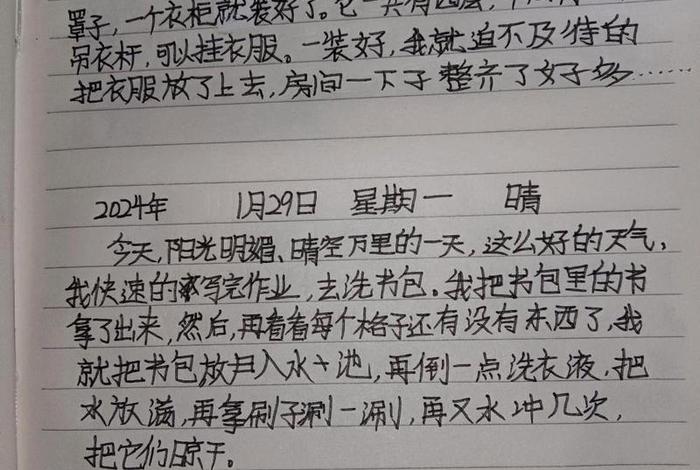 罩子，一个衣柜就装好了。它一共有四层，
吊衣杆，可以挂衣服。一装好，我就迫不及待的
把衣服放了上去，房间一下子整齐了好多……
2024年 1月29日 星期一 晴
今天，阳光明媚、晴空万里的一天，这么好的天气，
我快速的写完作业，去洗书包。我把书包里的书
拿了出来，然后，再看看每个格子还有没有东西了，我
就把书包放入水池，再倒一点洗衣液，把
水放满，再拿刷子涮一涮，再又水冲几次，
把它们晾干。